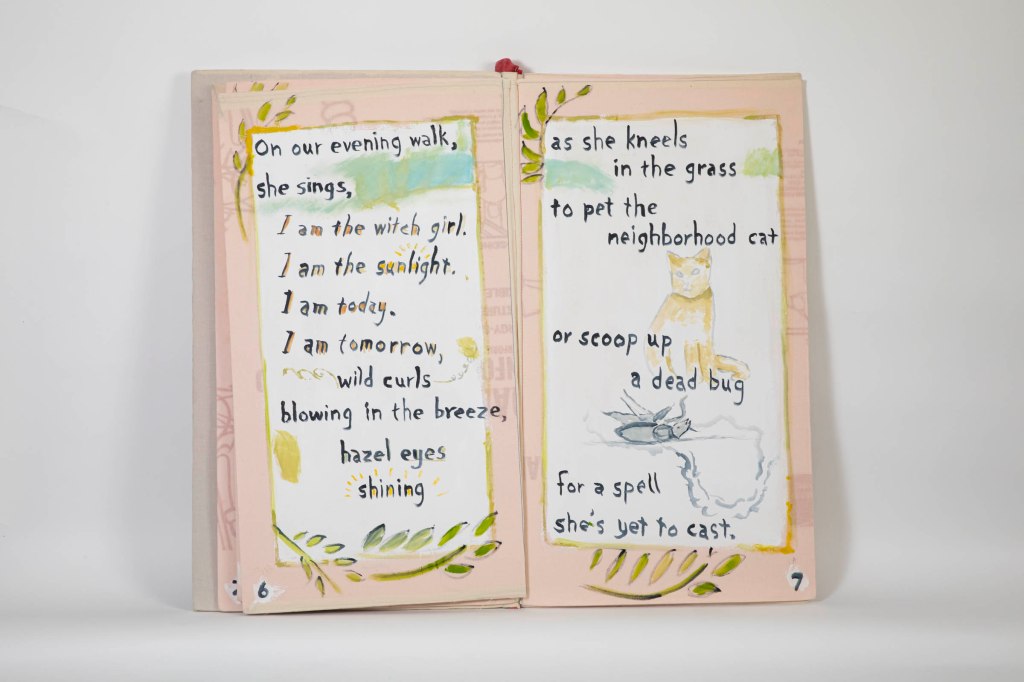 On our evening walk,
she sings,
I am the witch girl.
I am the sunlight.
I am today.
I am tomorrow,
wild curls
blowing in the breeze,
hazel eyes
shining
6
as she kneels
in the grass
to pet the
neighborhood cat
or scoop up
a dead bug
for a spell
she's yet to cast.
7